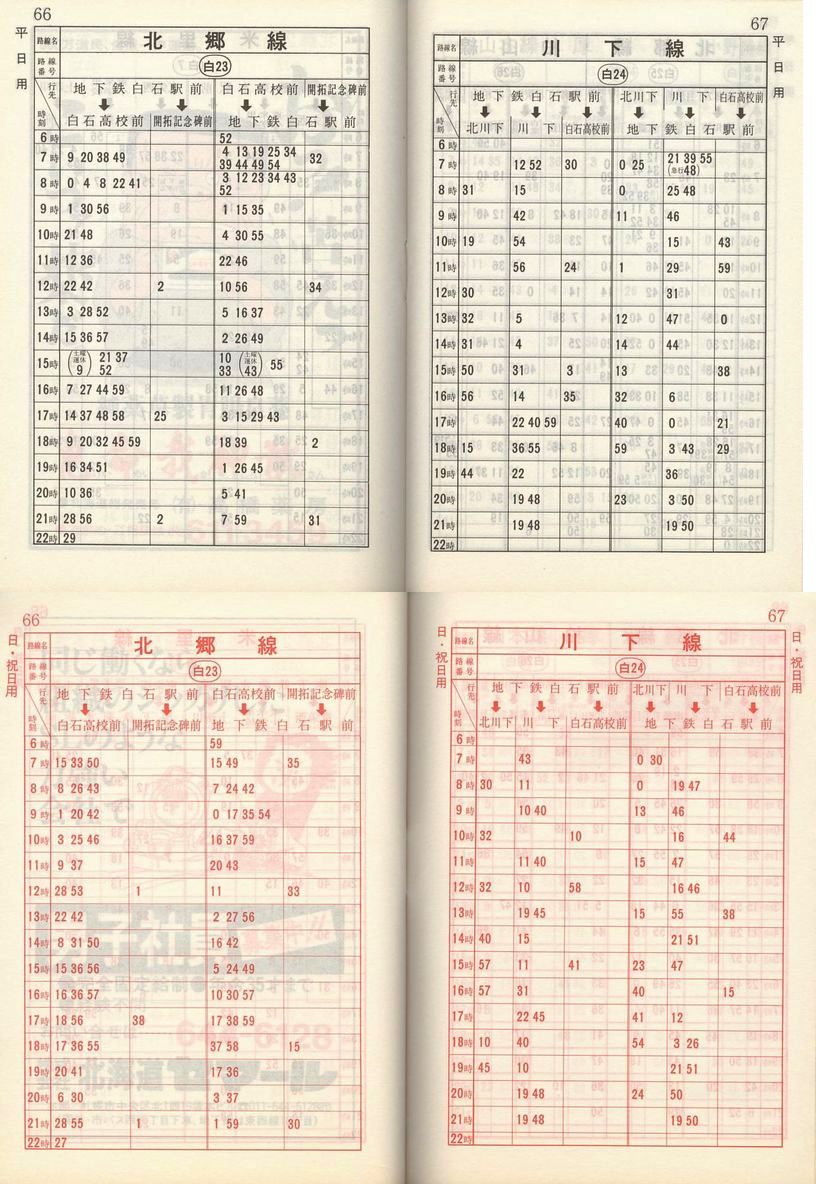 66
平日用
路線名 北郷線
路線番号 白23
行先 地下鉄白石駅前 白石高校前 開拓記念碑前
時刻 白石高校前 開拓記念碑前 地下鉄白石駅前
6時 52
7時 9 20 38 49 4 13 19 25 34 39 44 49 54 32
8時 0 4 8 22 41 3 12 23 34 43 52
9時 1 30 56 1 15 35
10時 21 48 4 30 55
11時 12 36 22 46
12時 22 42 2 10 56 34
13時 3 28 52 5 16 37
14時 15 36 57 2 26 49
15時 (土曜運休 9) 21 37 52 10 33 (土曜運休 43) 55
16時 7 27 44 59 11 26 48
17時 14 37 48 58 25 3 15 29 43
18時 9 20 32 45 59 18 39 2
19時 16 34 51 1 26 45
20時 10 36 5 41
21時 28 56 2 7 59 31
22時 29
67
平日用
路線名 川下線
路線番号 白24
行先 地下鉄白石駅前 北川下 川下 白石高校前
時刻 北川下 川下 白石高校前 地下鉄白石駅前
6時
7時 12 52 30 0 25 21 39 55 (急行48)
8時 31 15 0 25 48
9時 42 11 46
10時 19 54 15 43
11時 56 24 1 29 59
12時 30 31
13時 32 5 12 47 0
14時 31 4 14 44
15時 50 31 3 13 33 38
16時 56 14 35 32 6
17時 22 40 59 40 0 21
18時 15 36 55 59 3 43 29
19時 44 22 36
20時 19 48 23 3 50
21時 19 48 19 50
22時
66
日・祝日用
路線名 北郷線
路線番号 白23
行先 地下鉄白石駅前 白石高校前 開拓記念碑前
時刻 白石高校前 開拓記念碑前 地下鉄白石駅前
6時 59
7時 15 33 50 15 49 35
8時 8 26 43 7 24 42
9時 1 20 42 0 17 35 54
10時 3 25 46 16 37 59
11時 9 37 20 43
12時 28 53 1 11 33
13時 22 42 2 27 56
14時 8 31 50 16 42
15時 15 36 56 5 24 49
16時 16 36 57 10 30 57
17時 18 56 38 17 38 59
18時 17 36 55 37 58 15
19時 20 41 17 36
20時 6 30 3 37
21時 28 55 1 1 59 30
22時 27
67
日・祝日用
路線名 川下線
路線番号 白24
行先 地下鉄白石駅前 北川下 川下 白石高校前
時刻 北川下 川下 白石高校前 地下鉄白石駅前
6時
7時 43 0 30
8時 30 11 0 19 47
9時 10 40 13 46
10時 32 10 16 44
11時 11 40 15 47
12時 32 10 58 16 46
13時 19 45 15 55 38
14時 40 15 21 51
15時 57 11 41 23 47
16時 57 31 40 15
17時 22 45 41 12
18時 10 40 54 3 26
19時 45 10 21 51
20時 19 48 24 50
21時 19 48 19 50
22時